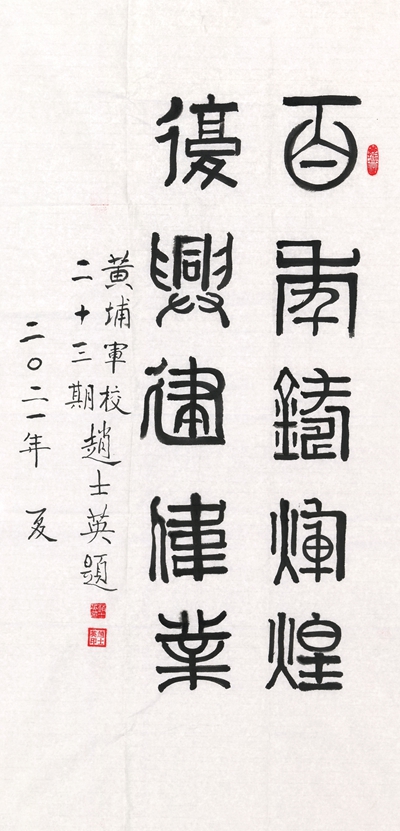 百年鑄煇煌
復興建偉業
黃埔軍校
二十三期
趙士英題
二〇二一年 夏